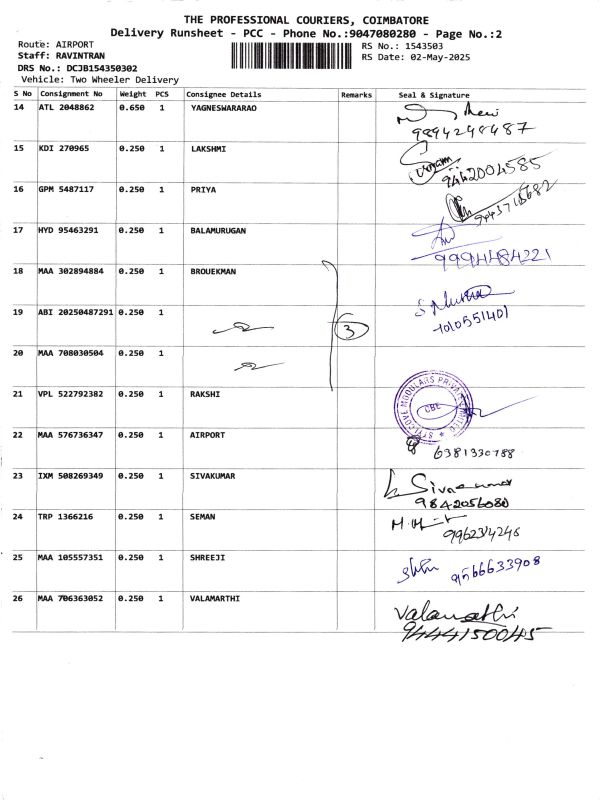 THE PROFESSIONAL COURIERS, COIMBATORE
Delivery Runsheet - PCC - Phone No.:9047080280 - Page No.:2
Route: AIRPORT
Staff: RAVINTRAN
DRS No.: DCJB154350302
Vehicle: Two Wheeler Delivery
RS No.: 1543503
RS Date: 02-May-2025
S No Consignment No Weight PCS Consignee Details Remarks Seal & Signature
14 ATL 2048862 0.650 1 YAGNESWARARAO
9894248487
15 KDI 270965 0.250 1 LAKSHMI
9442004585
16 GPM 5487117 0.250 1 PRIYA
17 HYD 95463291 0.250 1 BALAMURUGAN
9994484221
18 MAA 302894884 0.250 1 BROUEKMAN
19 ABI 20250487291 0.250 1
3
7010551401
20 MAA 708030504 0.250 1
21 VPL 522792382 0.250 1 RAKSHI
CBE
22 MAA 576736347 0.250 1 AIRPORT
6381330788
23 IXM 508269349 0.250 1 SIVAKUMAR
9842056080
24 TRP 1366216 0.250 1 SEMAN
9962314246
25 MAA 105557351 0.250 1 SHREEJI
9566633908
26 MAA 706363052 0.250 1 VALAMARTHI
Valamathi
9444150045